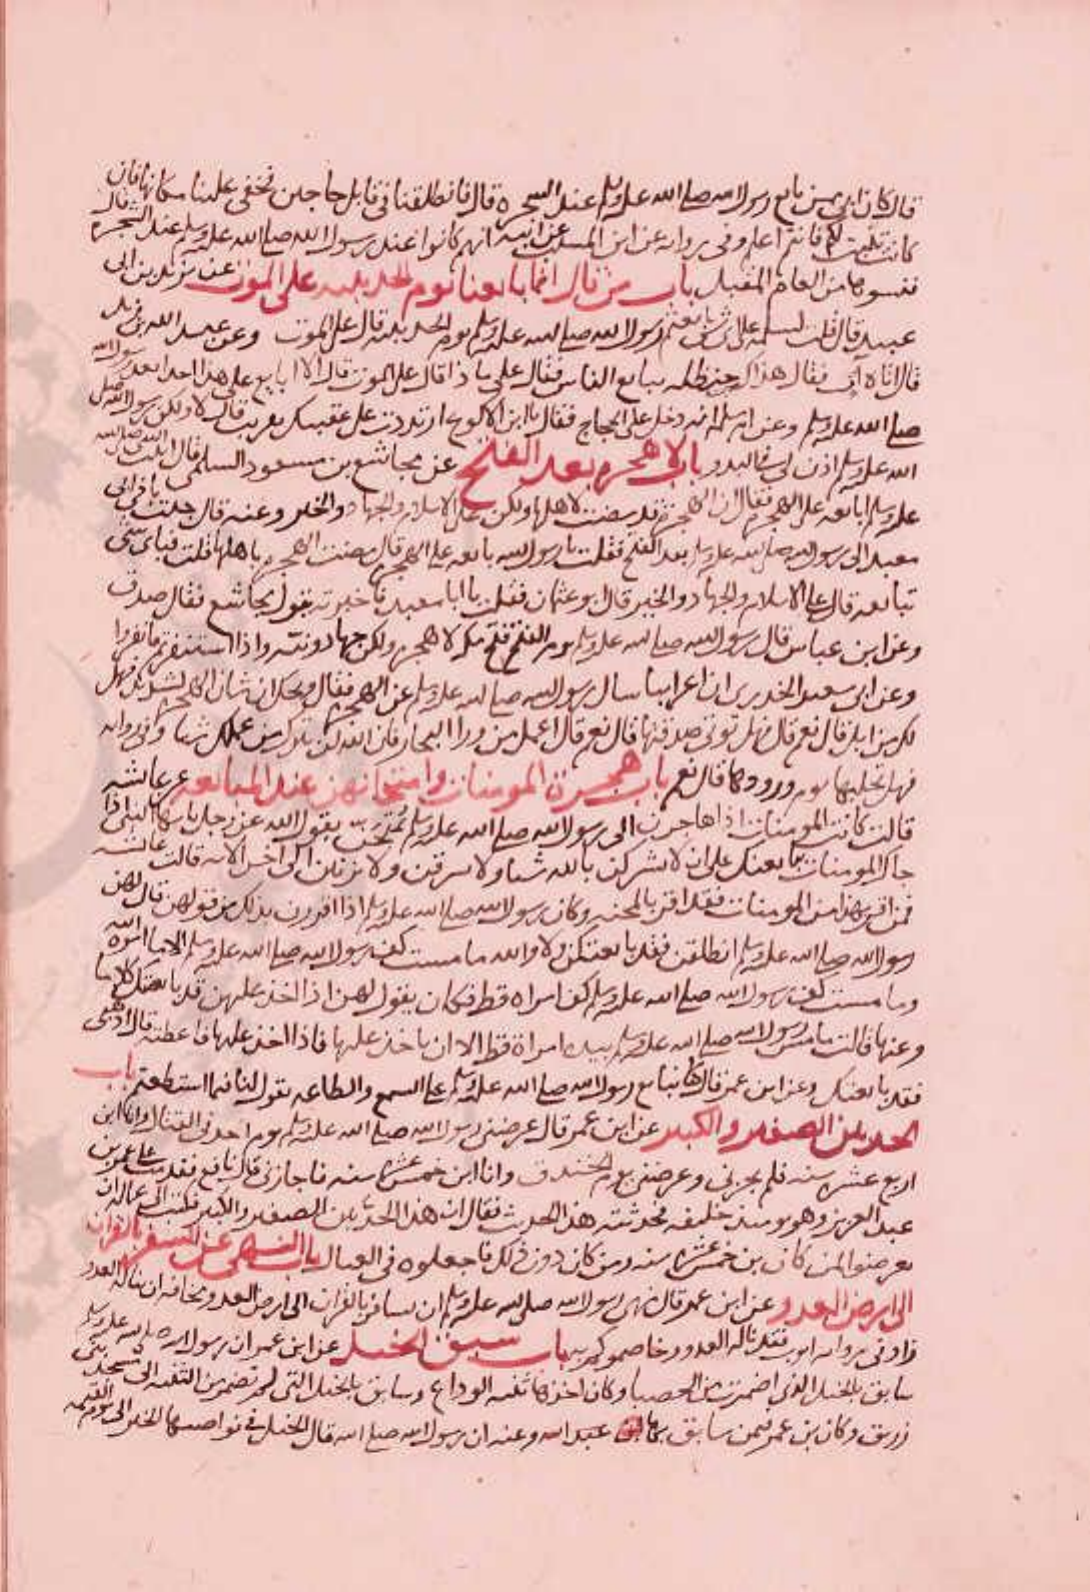 قال كان ابي ممن بايع رسول الله صلى الله عليه وسلم عند الشجرة قال فانطلقنا في قابل حاجين فخفي علينا مكانها فان
كانت تبينت لكم فانتم اعلم وفي رواية عن ابن المسيب عن ابيه انهم كانوا عند رسول الله صلى الله عليه وسلم عند الشجرة قال
فنسوها من العام المقبل باب من قال انما بايعنا يوم الحديبية على الموت عن يزيد بن ابي
عبيد قال قلت لسلمة على اي شي بايعتم رسول الله صلى الله عليه وسلم يوم الحديبية قال على الموت وعن عبد الله بن زيد
قال اتاه آت فقال هذاك ابن حنظلة يبايع الناس فقال على ماذا قال على الموت قال لا ابايع على هذا احدا بعد رسول الله
صلى الله عليه وسلم وعن ابن سلمة انه دخل على الحجاج فقال يا ابن الاكوع ارتددت على عقبيك تعربت قال لا ولكن رسول الله صلى
الله عليه وسلم اذن لي في البدو باب لا هجرة بعد الفتح عن مجاشع بن مسعود السلمي قال اتيت النبي صلى الله
عليه وسلم ابايعه على الهجرة فقال ان الهجرة قد مضت لاهلها ولكن على الاسلام والجهاد والخير وعنه قال جئت باخي ابي
معبد الى رسول الله صلى الله عليه وسلم بعد الفتح فقلت يا رسول الله بايعه على الهجرة قال مضت الهجرة باهلها قلت فباي شي
تبايعه قال على الاسلام والجهاد والخير قال ابو عثمان فلقيت ابا معبد فاخبرته بقول مجاشع فقال صدق
وعن ابن عباس قال رسول الله صلى الله عليه وسلم يوم الفتح فتح مكة لا هجرة ولكن جهاد ونية واذا استنفرتم فانفروا
وعن ابي سعيد الخدري ان اعرابيا سال رسول الله صلى الله عليه وسلم عن الهجرة فقال ويحك ان شان الهجرة لشديد فهل
لك من ابل قال نعم قال فهل توتي صدقتها قال نعم قال اعمل من ورا البحار فان الله لن يترك من عملك شيا وفي رواية
فهل تحلبها يوم ورودها قال نعم باب هجرة المومنات وامتحانهن عند المبايعة عن عائشة
قالت كانت المومنات اذا هاجرن الى رسول الله صلى الله عليه وسلم يمتحن بقول الله عز وجل يا ايها النبي اذا
جاك المومنات يبايعنك على ان لا يشركن بالله شيا ولا يسرقن ولا يزنين الى اخر الاية قالت عائشة
فمن اقر بهذا من المومنات فقد اقر بالمحنة وكان رسول الله صلى الله عليه وسلم اذا اقررن بذلك من قولهن قال لهن
رسول الله صلى الله عليه وسلم انطلقن فقد بايعتكن ولا والله ما مست كف رسول الله صلى الله عليه وسلم الا بما امره الله
وما مست كف رسول الله صلى الله عليه وسلم كف امراة قط فكان يقول لهن اذا اخذ عليهن قد بايعتكن كلاما
وعنها قالت ما مس رسول الله صلى الله عليه وسلم بيده امراة قط الا ان ياخذ عليها فاذا اخذ عليها فاعطته قال اذهبي
فقد بايعتك وعن ابن عمر قال كنا نبايع رسول الله صلى الله عليه وسلم على السمع والطاعة يقول لنا فيما استطعتم باب
الحد بين الصغير والكبير عن ابن عمر قال عرضني رسول الله صلى الله عليه وسلم يوم احد في القتال وانا ابن
اربع عشرة سنة فلم يجزني وعرضني يوم الخندق وانا ابن خمس عشرة سنة فاجازني قال نافع فقدمت على عمر بن
عبد العزيز وهو يومئذ خليفة فحدثته هذا الحديث فقال ان هذا الحد بين الصغير والكبير فكتب الى عماله ان
يعرضوا لمن كان بن خمس عشرة سنة ومن كان دون ذلك فاجعلوه في العيال باب النهي عن السفر بالقران
الى ارض العدو وعن ابن عمر قال نهى رسول الله صلى الله عليه وسلم ان يسافر بالقران الى ارض العدو مخافة ان يناله العدو
زاد في رواية ايوب فقد ناله العدو وخاصموكم به باب سبق الخيل عن ابن عمر ان رسول الله صلى الله عليه وسلم
سابق بالخيل الذي اضمرت من الحفيا وكان اخرها ثنية الوداع وسابق بالخيل التي لم تضمر من الثنية الى مسجد بني
زريق وكان بن عمر فيمن سابق بها عبد الله وعنه ان رسول الله صلى الله قال الخيل في نواصيها الخير الى يوم القيمة